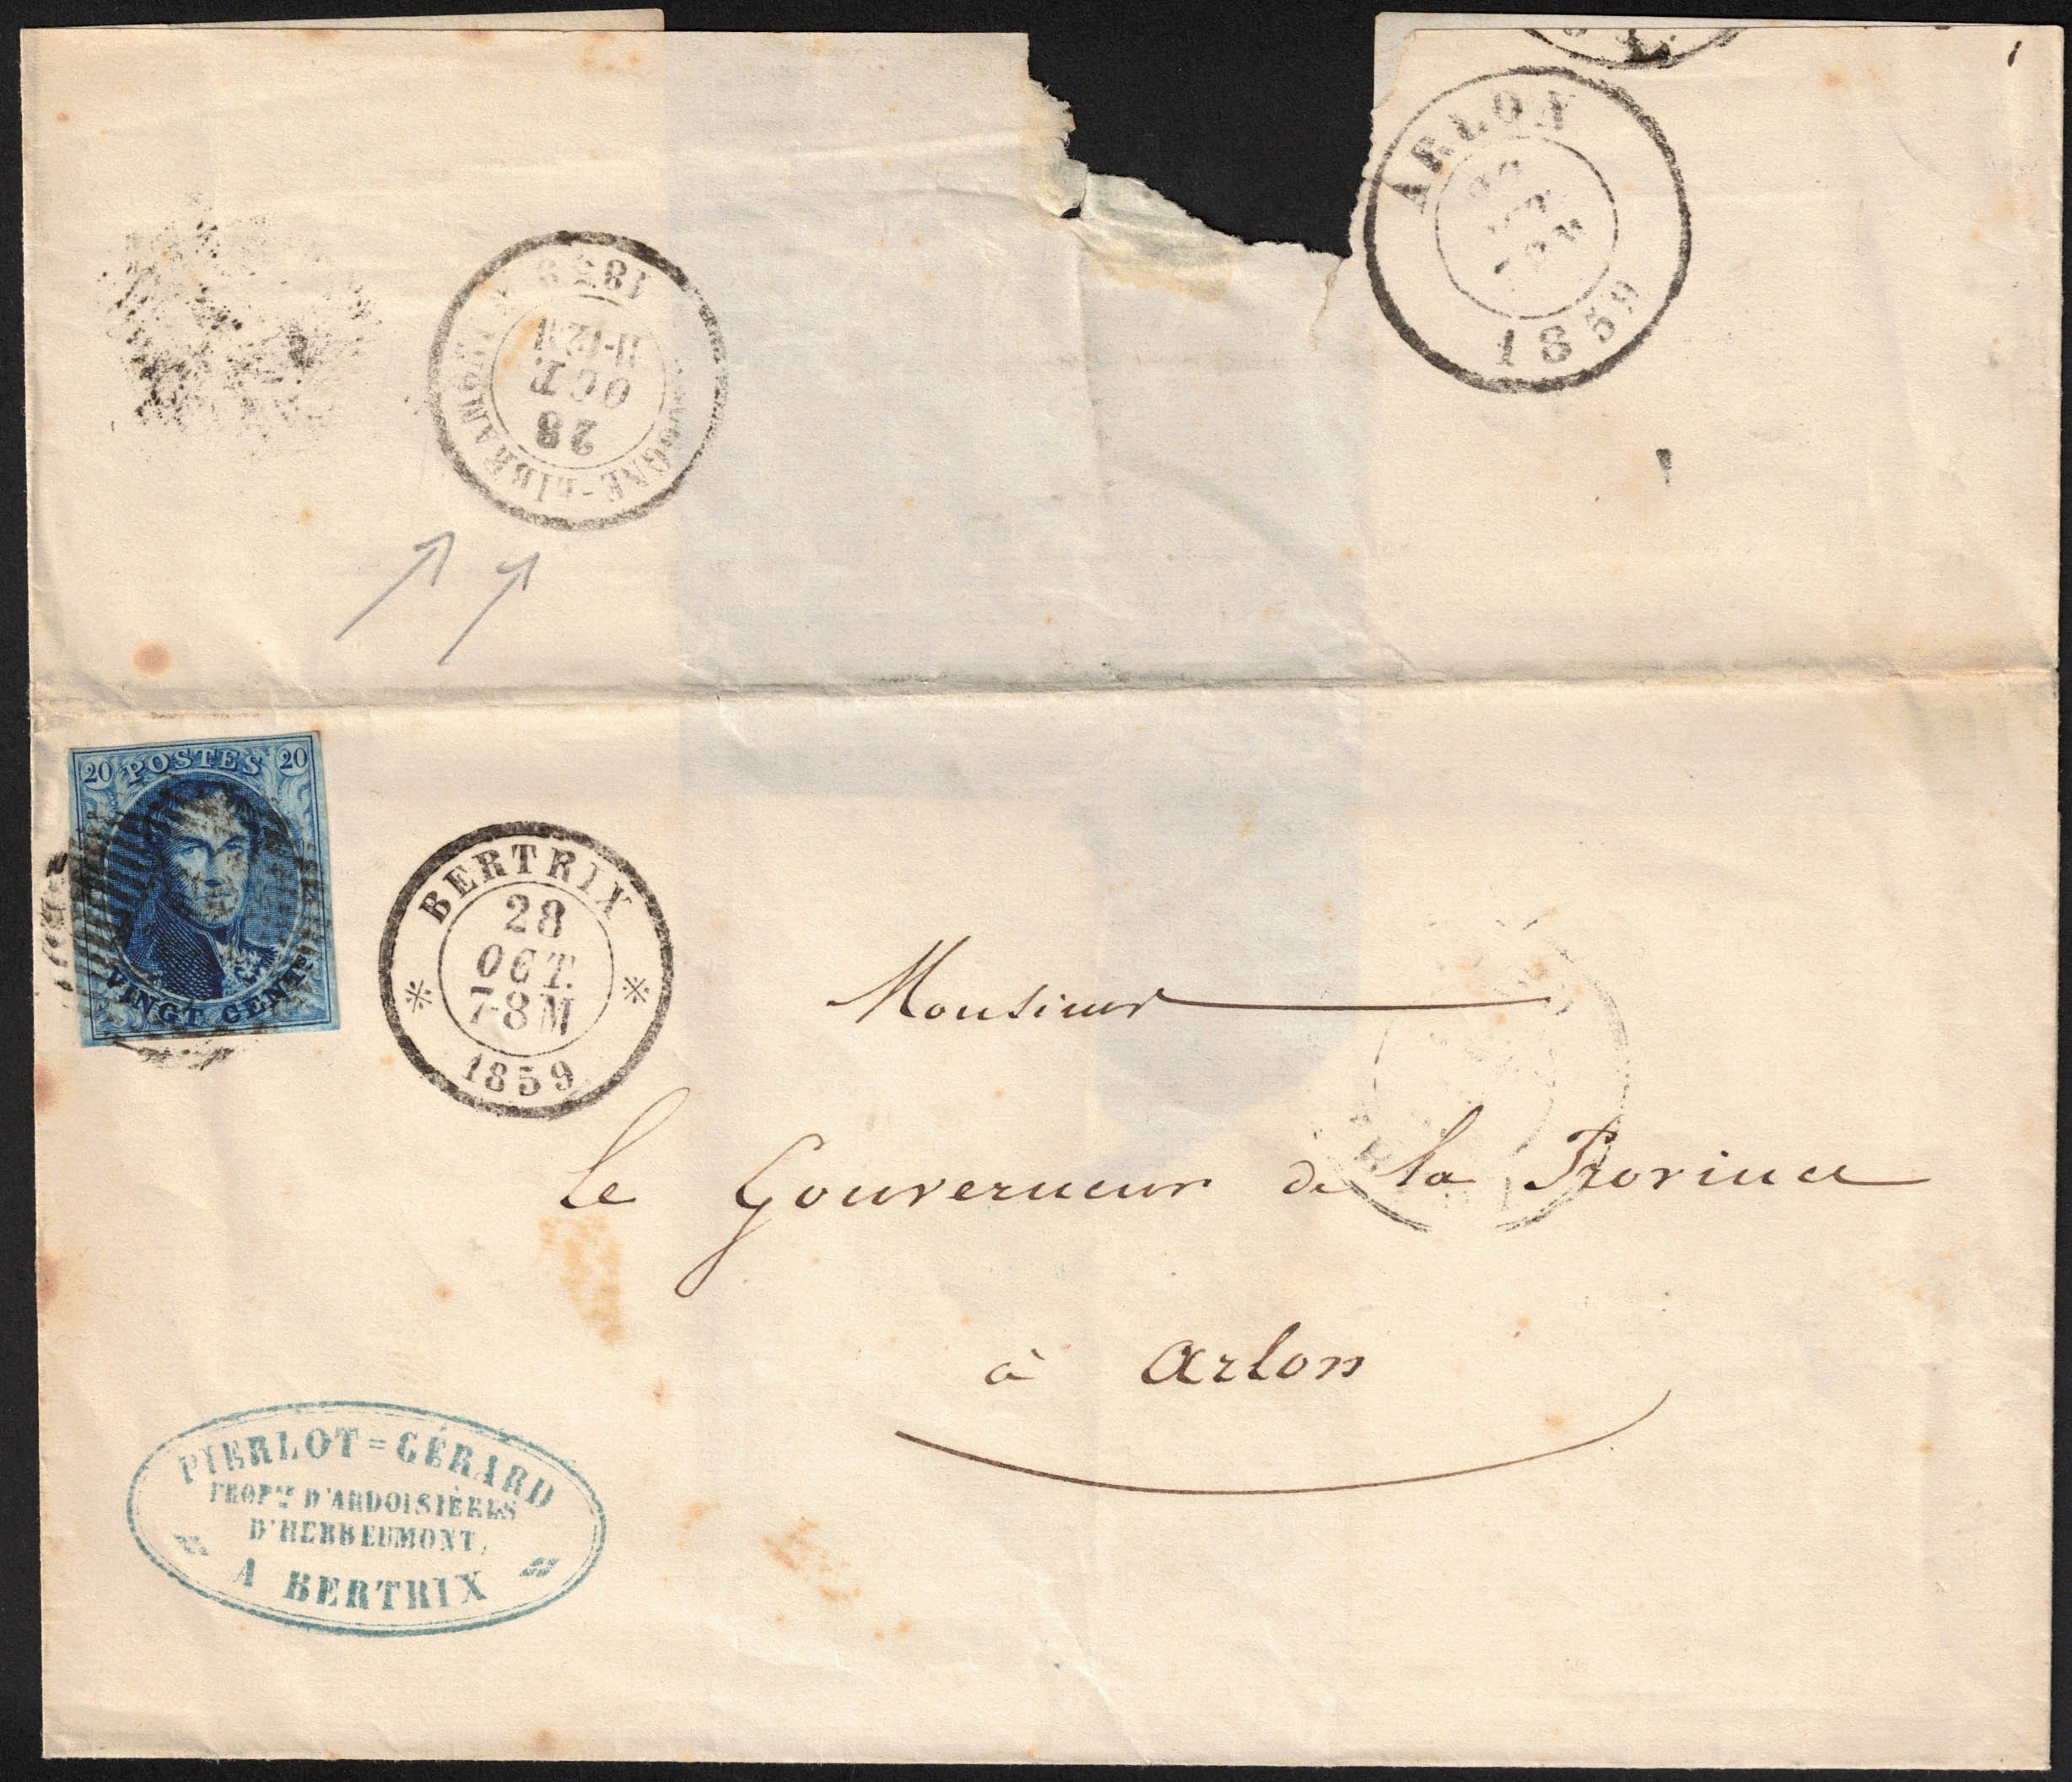 ARLON
1859
1859
11-12 M
OCT.
28
20 POSTES 20
VINGT CENTS
BERTRIX
28
OCT.
7-8 M
1859
Monsieur
le Gouverneur de la Province
à Arlon
PIERLOT=GÉRARD
PROPRE D'ARDOISIÈRES
D'HERBEUMONT,
A BERTRIX